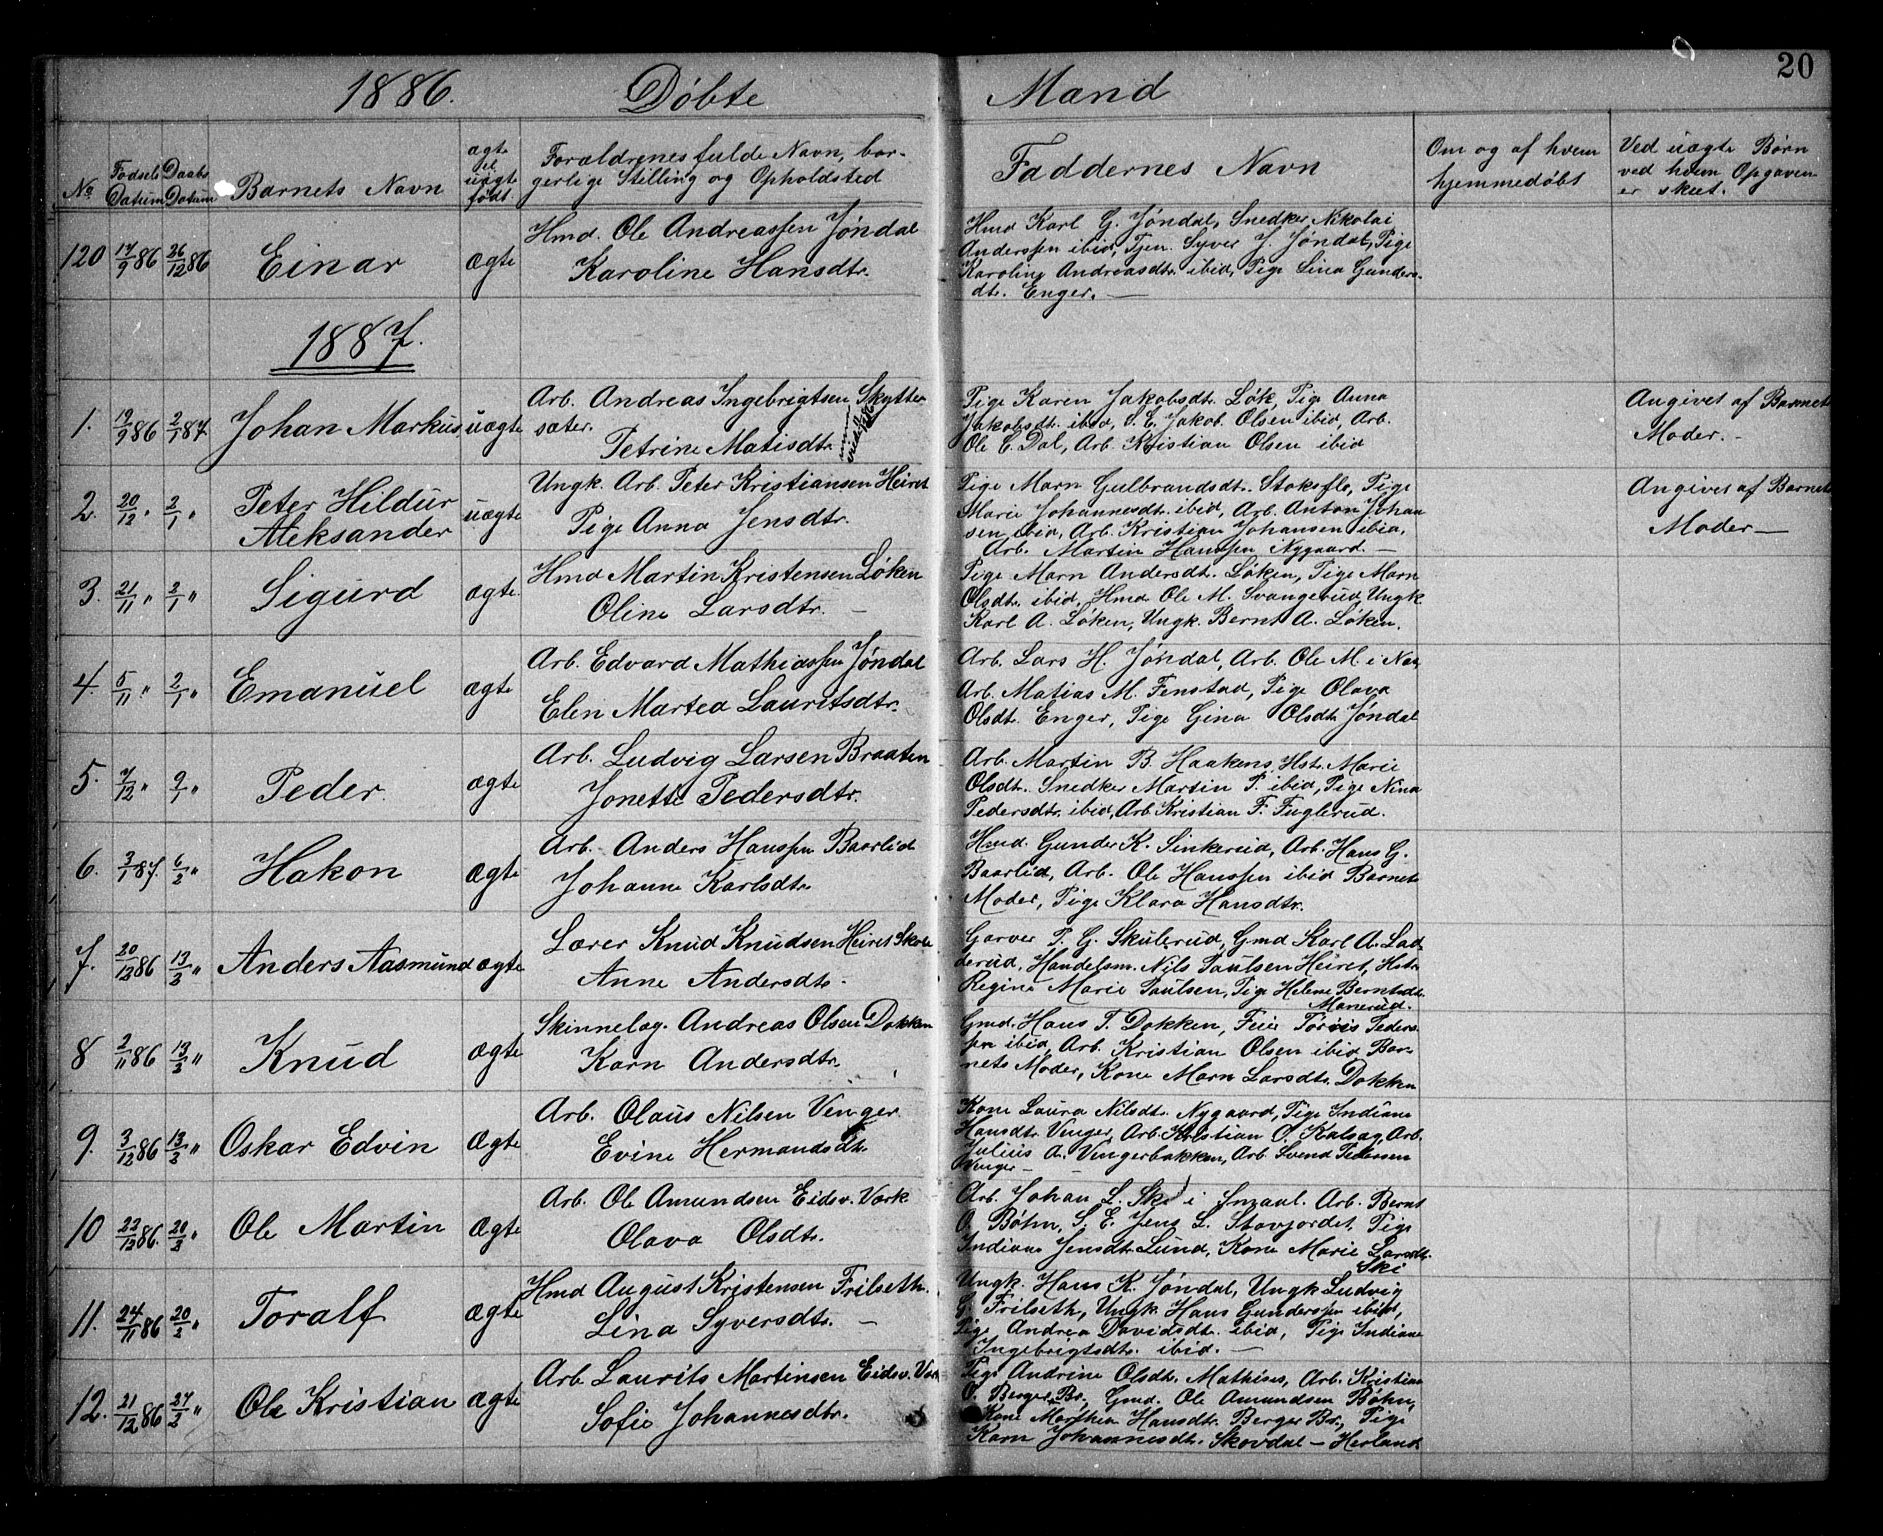 1886. Døbte Mænd 20
No Fødsels Datum Daabs Datum Barnets Navn ægte el. uægte født Forældrenes fulde Navn, bor-
gerlige Stilling og Opholdsted
Faddernes Navn
Om og af hvem
hjemmedøbt
Ved uægte Børn
ved hvem Opgaven
er skeet.
120 17/9 86 26/12 86 Einar ægte
Hmd. Ole Andreassen Jøndal
Karoline Hansdtr.
Hmd Karl G. Jøndal, Snedker Nikolai
Anderssen ibid, Tjen. Syver J. Jøndal, Pige
Karoline Andreasdtr. ibid, Pige Lina Gunders-
dtr. Enger. —
1887.
1. 19/9 86 2/1 87 Johan Markus uægte
Arb. Andreas Ingebrigtsen Skytter-
sæter.
Petrine Matisdtr.
Pige Karen Jakobsdt. Løk, Pige Anna
Jakobsdt. ibid, S. E. Jakob Olsen ibid, Arb.
Ole E. Dal, Arb. Kristian Olsen ibid
Angivet af Barnets
Moder. -
2. 20/12 " 2/1 " Peter Hildur
Aleksander uægte
Ungk. Arb. Peter Kristiansen Heiret
Pige Anna Jensdtr.
Pige Marn Gulbrandsdt. Stoksflo, Pige
Marie Johannesdt. ibid, Arb. Anton Johan
sen ibid, Arb. Kristian Johansen ibid,
Arb. Martin Hanssen Nygaard. —
Angivet af Barnets
Moder —
3. 21/11 " 2/1 " Sigurd ægte.
Hmd Martin Kristensen Løken
Oline Larsdtr. —
Pige Marn Andersdt. Løken, Pige Marn
Olsdtr. ibid, Hmd Ole M. Svangerud, Ungk.
Karl A. Løken, Ungk. Bernt A. Løken.
4. 5/11 " 2/1 " Emanuel ægte
Arb. Edvard Mathiassen Jøndal
Elen Martea Lauritsdtr.
Arb. Lars H. Jøndal, Arb. Ole M. i Nes,
Arb. Matias M. Fenstad, Pige Olava
Olsdt. Enger, Pige Gina Olsdt. Jøndal
5. 7/12 " 9/1 " Peder. ægte
Arb. Ludvig Larsen Braaten
Jonette Pedersdtr.
Arb. Martin B. Haakens, Hst. Marie
Olsdt. Snedker Martin P. ibid, Pige Nina
Pedersdtr. ibid, Arb Kristian F. Fuglerud.
6. 3/1 87. 6/2 " Hakon ægte
Arb. Anders Hanssen Baarlid
Johanne Karlsdtr.
Hmd. Gunder K. Sinkerud, Arb. Hans G.
Baarlid, Arb. Ole Hanssen ibid Barnets
Moder, Pige Klara Hansdtr.
7. 20/12 86 13/2 " Anders Aasmund ægte
Lærer Knud Knudsen Heiret Skole
Anne Andersdtr. -
Garver P. G. Skulerud, Gmd Karl A. Lad-
derud, Handelsm. Nils Paulsen Heiret, Hst.
Regine Marie Paulsen, Pige Helene Berntsdt.
Manerud.
8 2/11 86 13/2 " Knud ægte
Skinnelæg. Andreas Olsen Dokken
Karn Andersdtr.
Gmd. Hans T. Dokken, Peders-
sen ibid, Arb. Kristian Olsen ibid Bar-
nets Moder, Kone Marn Larsdtr. Dokken
9. 3/12 86 13/2 " Oskar Edvin Ægte
Arb. Olaus Nilsen Venger
Evine Hermandsdtr.
Kone Laura Nilsdt. Nygaard, Pige Indiane
Hansdtr. Venger, Arb. Kristian O. Kalsag, Arb.
Julius A. Vengerbakken, Arb. Svend Pedersen
Venger —
10 22/12 86. 20/2 " Ole Martin Ægte
Arb. Ole Amundsen Eidsv. Værk
Olava Olsdtr.
Arb. Johan L. Ski i Smaal. Arb. Bernt
O. Bøhn, S. E. Jens L. Stovjordet, Pige
Indiane Jensdtr. Lund, Kone Marie Larsdt.
Ski
11. 24/11 86 20/2 " Toralf Ægte
Hmd August Kristensen Frilseth.
Lina Syversdtr. —
Ungk. Hans K. Jøndal, Ungk Ludvig
G. Frilseth, Ungk. Hans Gunderssen ibid,
Pige Andrea Davidsdt. ibid, Pige Indiane
Ingebrigtsdt. ibid. —
12. 21/12 86 27/2 " Ole Kristian ægte
Arb Laurits Martinsen Eidsv. Værk
Sofie Johannesdtr.
Pige Andrine Olsdt. Mathises, Arb. Kristian
O. Berger Br., Gmd. Ole Amundsen Bøhn,
Kone Marthea Hansdtr. Berger Br., Pige
Karn Johannesdt. Skovdal — Herland